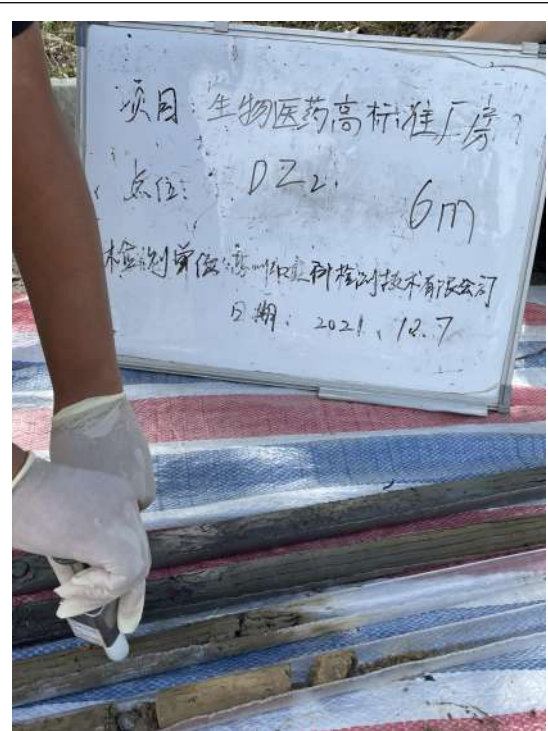 项目：生物医药高标准厂房
点位： DZ2. 6m
检测单位：苏州 科检测技术有限公司
日期：2021.12.7